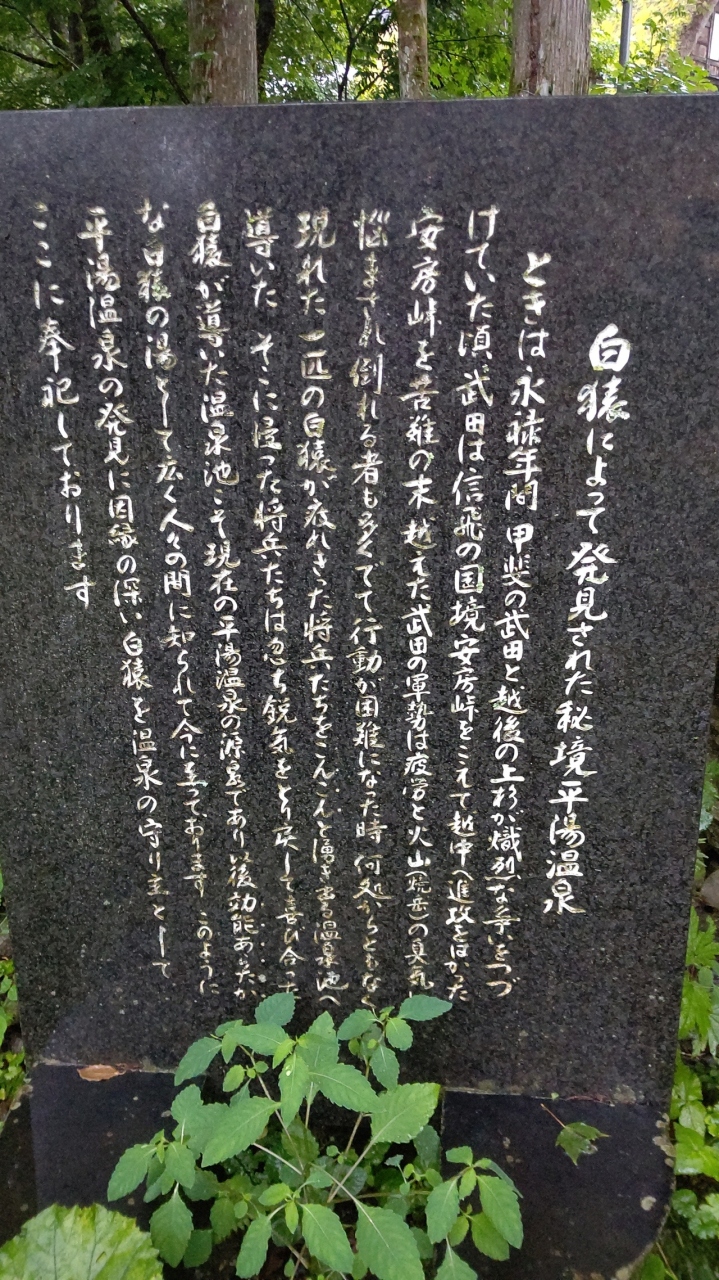 白猿によって発見された秘境平湯温泉
ときは永禄年間 甲斐の武田と越後の上杉が熾烈な争いをつづ
けていた頃、武田は信飛の国境安房峠をこえて越中へ進攻をはかった
安房峠を苦難の末 越えた武田の軍勢は疲労と火山(焼岳)の臭気に
悩まされ倒れる者も多くでて行動が困難になった時 何処からともなく
現れた一匹の白猿が疲れきった将兵たちをこんこんと湧き出る温泉池へ
導いた そこに浸った将兵たちは忽ち鋭気をとり戻して喜び合った
白猿が導いた温泉池こそ現在の平湯温泉の源泉であり以後効能あらたか
な白猿の湯として広く人々の間に知られて今に至っております このように
平湯温泉の発見に因縁の深い白猿を温泉の守り主として
ここに奉祀しております